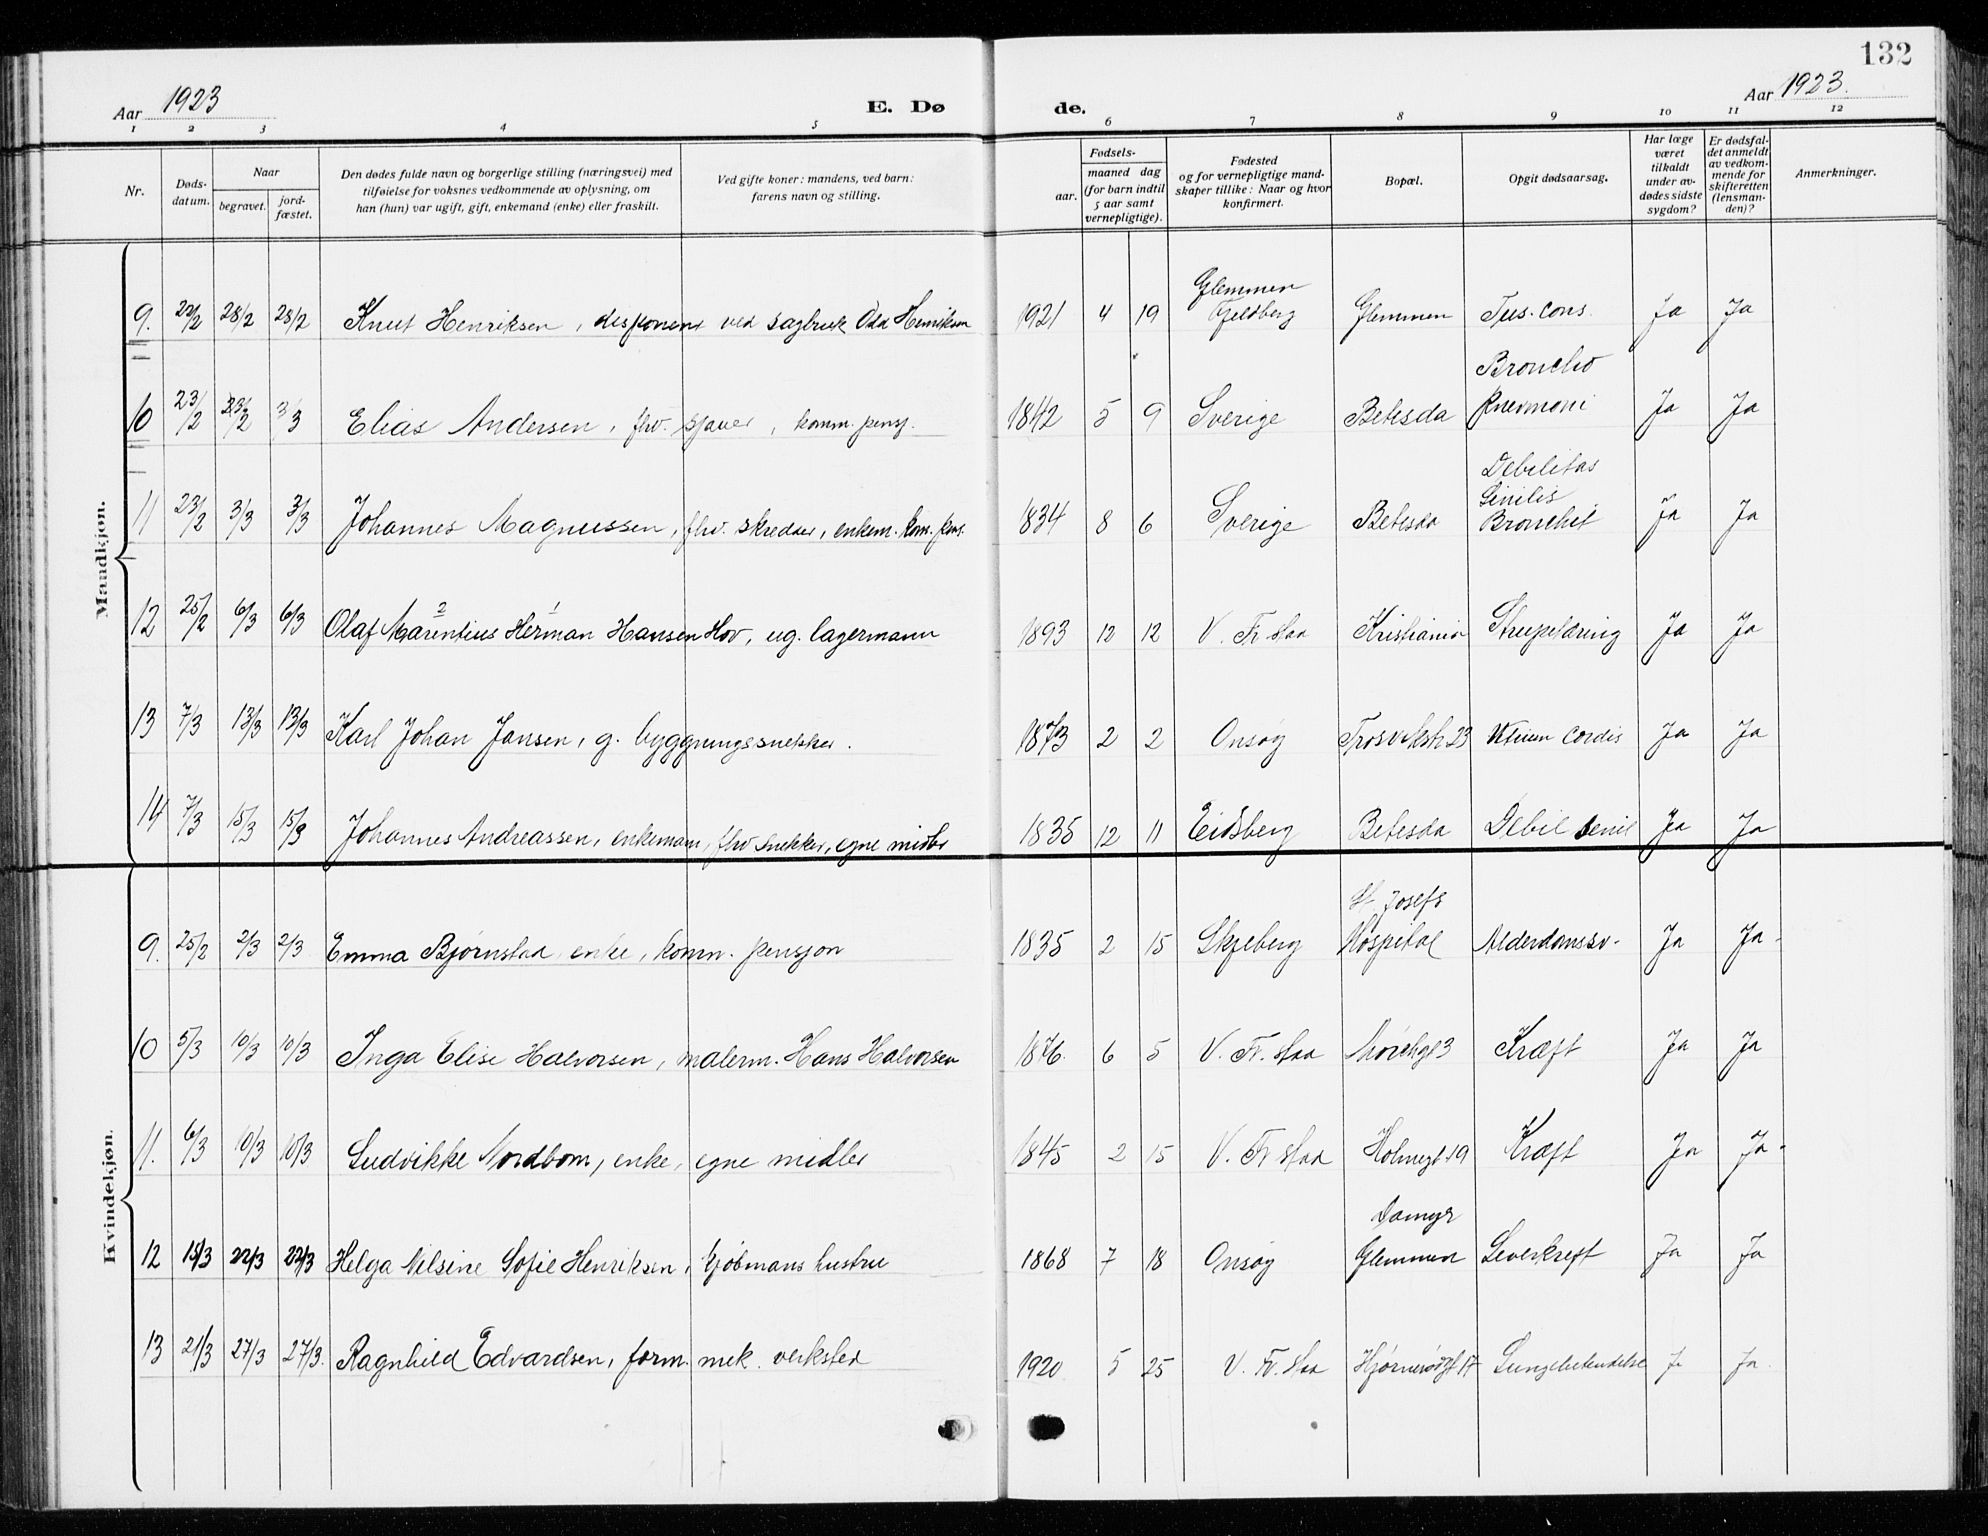 132
Aar 1923 E. Dø de. Aar 1923.
1 2 3 4 5 6 7 8 9 10 11 12
Nr. Døds-datum. Naar begravet. jord-fæstet. Den dødes fulde navn og borgerlige stilling (næringsvei) med tilføielse for voksnes vedkommende av oplysning, om han (hun) var ugift, gift, enkemand (enke) eller fraskilt. Ved gifte koner: mandens, ved barn: farens navn og stilling. Fødsels- aar. maaned dag (for barn indtil 5 aar samt vernepligtige). Fødested og for vernepligtige mand-skaper tillike: Naar og hvor konfirmert. Bopæl. Opgit dødsaarsag. Har læge været tilkaldt under av-dødes sidste sygdom? Er dødsfal-det anmeldt av vedkom-mende for skifteretten (lensman-den)? Anmerkninger.
Mandkjøn.
9. 22/2 28/2 28/2 Knut Henriksen, disponent ved sagbruk Odd Henriksen 1921 4 19 Glemmen Gjeldberg Glemmen Tus. cons. Ja Ja
10 23/2 3/3 Elias Andersen, fhv. sjauer, komm. pensj. 1842 5 9 Sverige Betesda Broncho pnevmoni Ja Ja
11 23/2 3/3 3/3 Johannes Magnussen, fhv. skredder, enkem. kom. pens. 1834 8 6 Sverige Betesda Debilitas Sinilis Bronchit Ja Ja
12 25/2 6/3 6/3 Olaf Marentius Herman Hansen Hov, ug. lagermann 1893 12 12 V. Fr.stad Kristiania Strupetæring Ja Ja
13 7/3 13/3 13/3 Karl Johan Jansen, g. byggningssnekker. 1873 2 2 Onsøy Trosvikstr 23 Vitium Cordis Ja Ja
14 7/3 15/3 15/3 Johannes Andreassen, enkemann, fhv snekker, egne midler 1835 12 11 Eidsberg Betesda Debil senil Ja Ja
Kvindekjøn.
9. 25/2 2/3 2/3 Emma Bjørnstad, enke, komm. pensjon 1835 2 15 Skjeberg St. Josefs Hospital Alderdomssv. Ja Ja
10 5/3 10/3 10/3 Inga Elise Halvorsen, malerm. Hans Halvorsen 1876. 6 5 V. Fr.stad Mørchgt 3 Kræft Ja Ja
11. 6/3 10/3 10/3 Ludvikke Nordbom, enke, egne midler 1845 2 15 V. Fr.stad Holmegt 19 Kræft Ja Ja
12 15/3 22/3 22/3 Helga Nilsine Sofie Henriksen, kjøbmans hustru 1868 7 18 Onsøy Glemmen Leverkreft Ja Ja
13 21/3 27/3 27/3. Ragnhild Edvardsen, form. mek. verksted 1920 5 25 V. Fr.stad 17 Lungebetendelse J. Ja.